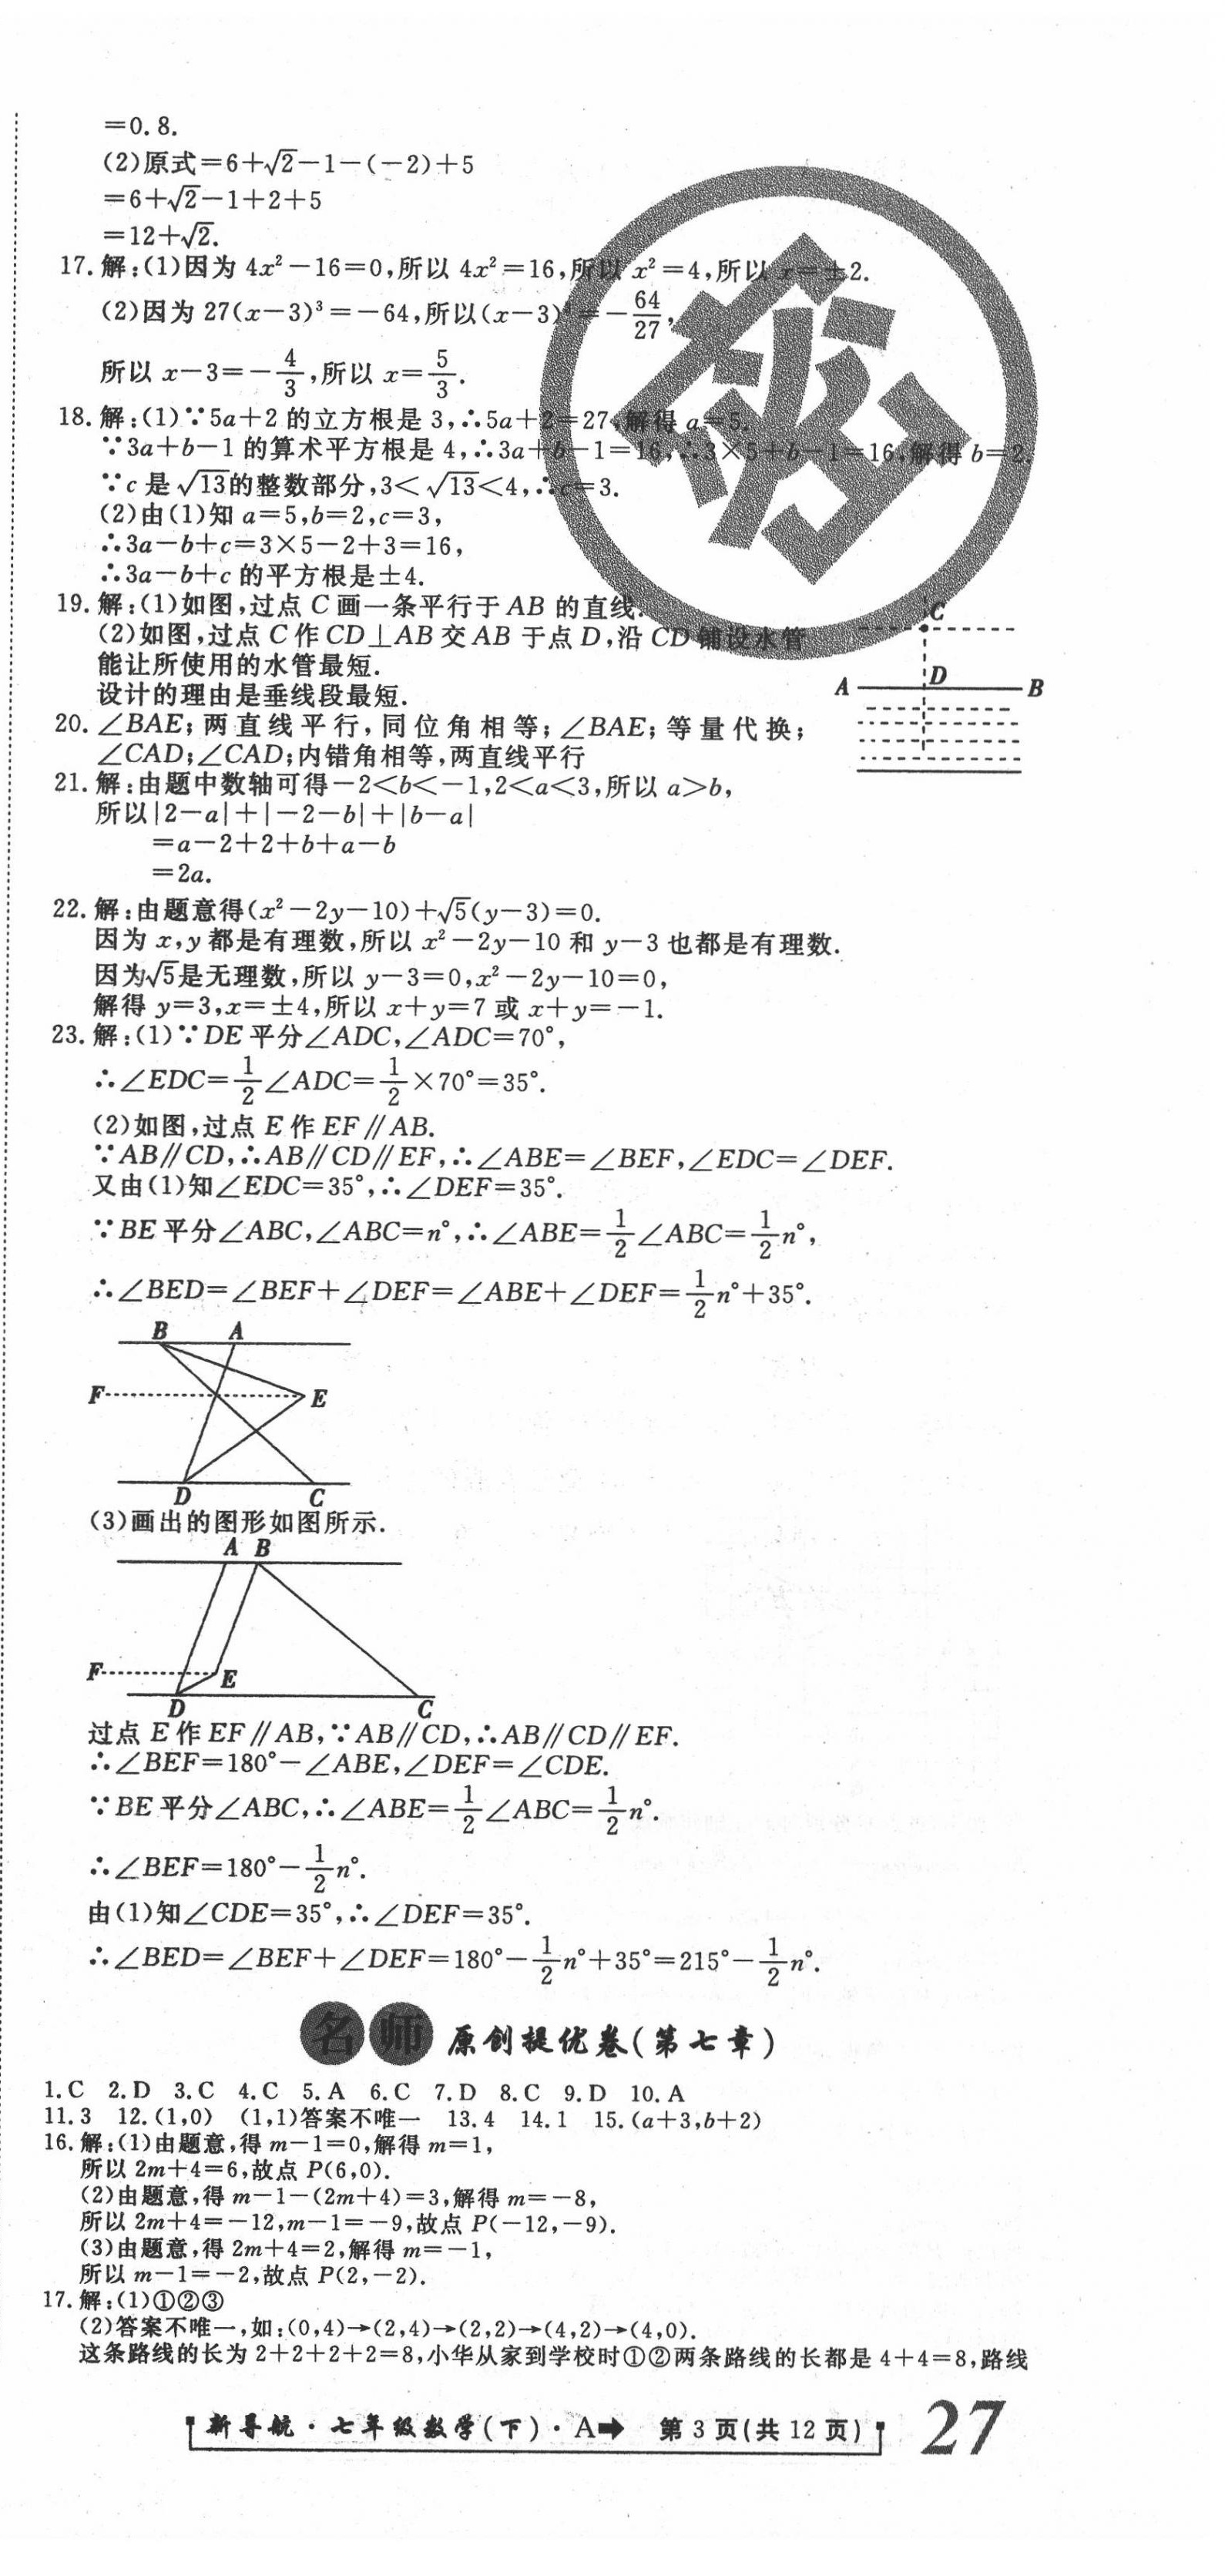 =0.8.
(2)原式=6+√2-1-(-2)+5
=6+√2-1+2+5
=12+√2.
17.解:(1)因为 4x²-16=0,所以 4x²=16,所以 x²=4,所以 x=±2.
(2)因为 27(x-3)³=-64,所以(x-3)³=-64/27,
所以 x-3=-4/3,所以 x=5/3.
18.解:(1)∵5a+2 的立方根是 3,∴5a+2=27,解得 a=5.
∵3a+b-1 的算术平方根是 4,∴3a+b-1=16,∴3×5+b-1=16,解得 b=2.
∵c 是√13的整数部分,3<√13<4,∴c=3.
(2)由(1)知 a=5,b=2,c=3,
∴3a-b+c=3×5-2+3=16,
∴3a-b+c 的平方根是±4.
19.解:(1)如图,过点 C 画一条平行于 AB 的直线.
(2)如图,过点 C 作 CD⊥AB 交 AB 于点 D,沿 CD 铺设水管
能让所使用的水管最短.
设计的理由是垂线段最短.
C
D
A
B
20.∠BAE;两直线平行,同位角相等;∠BAE;等量代换;
∠CAD;∠CAD;内错角相等,两直线平行
21.解:由题中数轴可得-2<b<-1,2<a<3,所以 a>b,
所以|2-a|+|-2-b|+|b-a|
=a-2+2+b+a-b
=2a.
22.解:由题意得(x²-2y-10)+√5(y-3)=0.
因为 x,y 都是有理数,所以 x²-2y-10 和 y-3 也都是有理数.
因为√5是无理数,所以 y-3=0,x²-2y-10=0,
解得 y=3,x=±4,所以 x+y=7 或 x+y=-1.
23.解:(1)∵DE 平分∠ADC,∠ADC=70°,
∴∠EDC=1/2∠ADC=1/2×70°=35°.
(2)如图,过点 E 作 EF∥AB.
∵AB∥CD,∴AB∥CD∥EF,∴∠ABE=∠BEF,∠EDC=∠DEF.
又由(1)知∠EDC=35°,∴∠DEF=35°.
∵BE 平分∠ABC,∠ABC=n°,∴∠ABE=1/2∠ABC=1/2n°,
∴∠BED=∠BEF+∠DEF=∠ABE+∠DEF=1/2n°+35°.
B A
F E
D C
(3)画出的图形如图所示.
A B
F E
D C
过点 E 作 EF∥AB,∵AB∥CD,∴AB∥CD∥EF.
∴∠BEF=180°-∠ABE,∠DEF=∠CDE.
∵BE 平分∠ABC,∴∠ABE=1/2∠ABC=1/2n°.
∴∠BEF=180°-1/2n°.
由(1)知∠CDE=35°,∴∠DEF=35°.
∴∠BED=∠BEF+∠DEF=180°-1/2n°+35°=215°-1/2n°.
名师原创提优卷(第七章)
1.C 2.D 3.C 4.C 5.A 6.C 7.D 8.C 9.D 10.A
11.3 12.(1,0) (1,1)答案不唯一 13.4 14.1 15.(a+3,b+2)
16.解:(1)由题意,得 m-1=0,解得 m=1,
所以 2m+4=6,故点 P(6,0).
(2)由题意,得 m-1-(2m+4)=3,解得 m=-8,
所以 2m+4=-12,m-1=-9,故点 P(-12,-9).
(3)由题意,得 2m+4=2,解得 m=-1,
所以 m-1=-2,故点 P(2,-2).
17.解:(1)①②③
(2)答案不唯一,如:(0,4)→(2,4)→(2,2)→(4,2)→(4,0).
这条路线的长为 2+2+2+2=8,小华从家到学校时①②两条路线的长都是 4+4=8,路线
新导航·七年级数学(下)·A➡ 第 3 页(共 12 页) 27